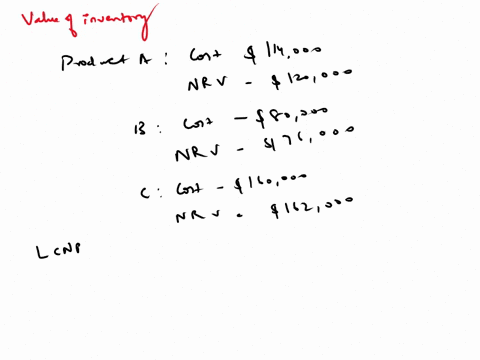 Value of inventory
Product A : Cost $ 114,000
NRV - $120,000
B : Cost - $80,000
NRV - $76,000
C : Cost - $160,000
NRV - $162,000
LCNR